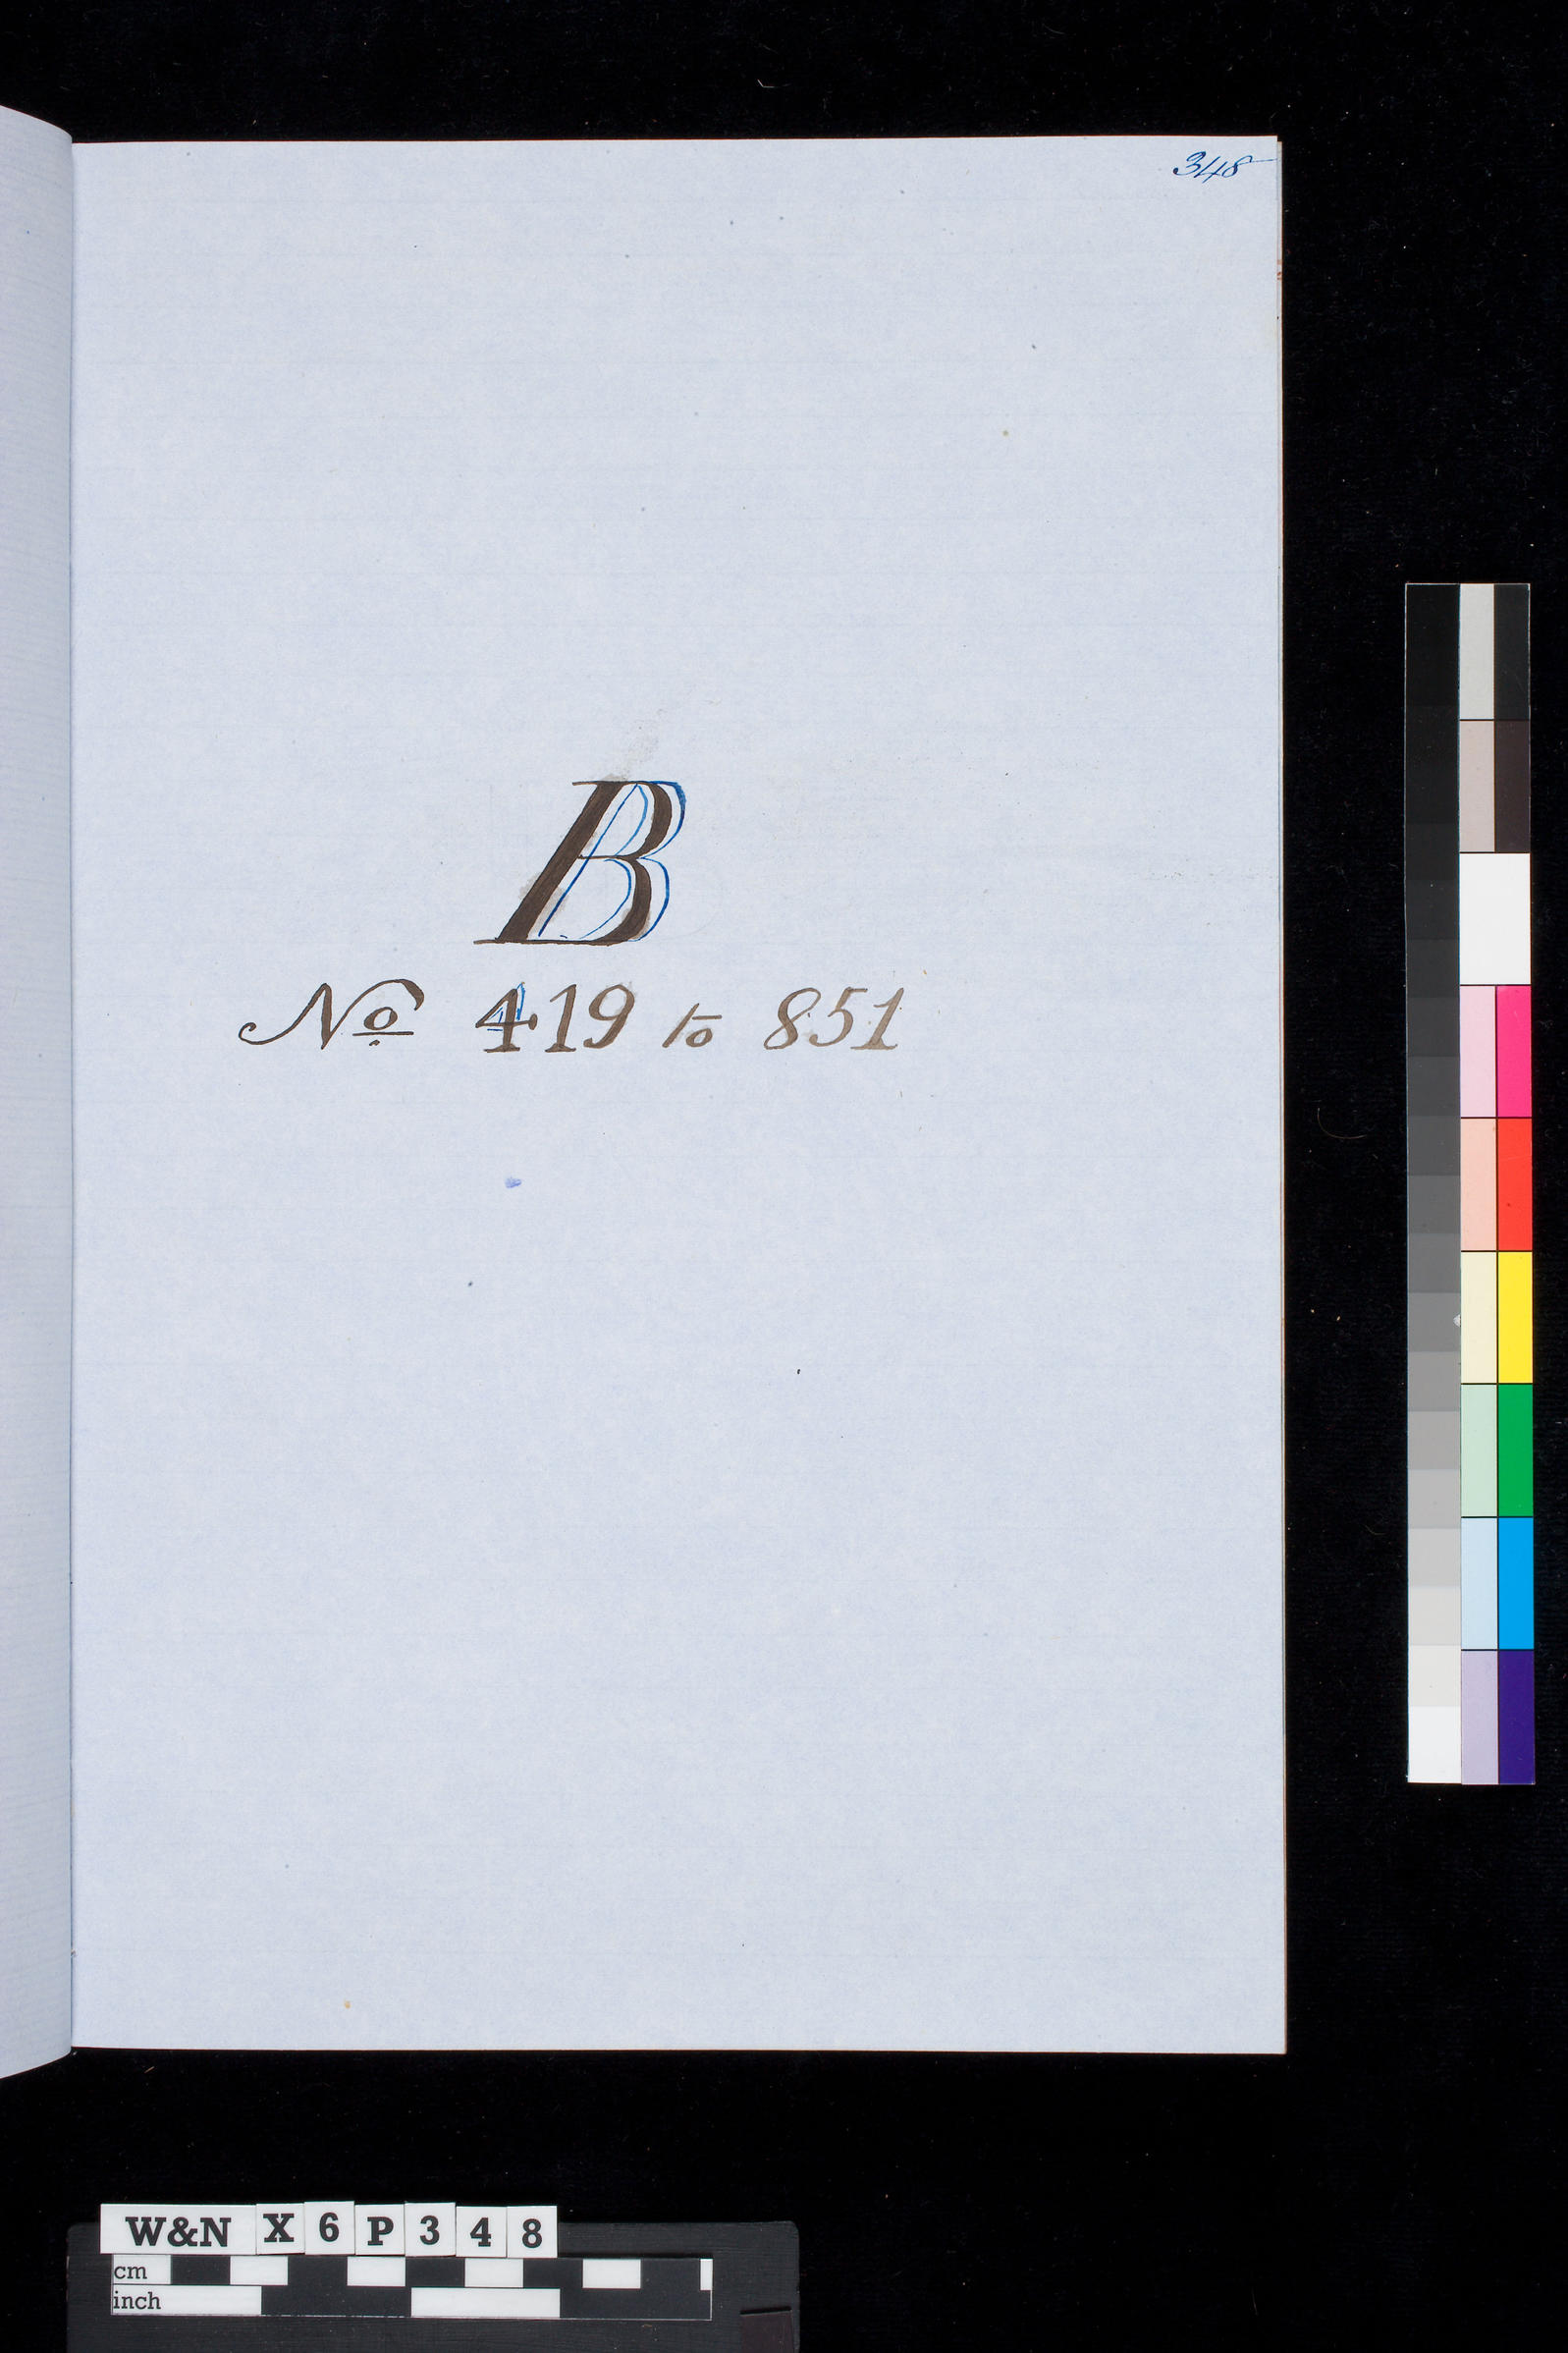 348
B
No 419 to 851
W&N X 6 P 3 4 8
cm
inch